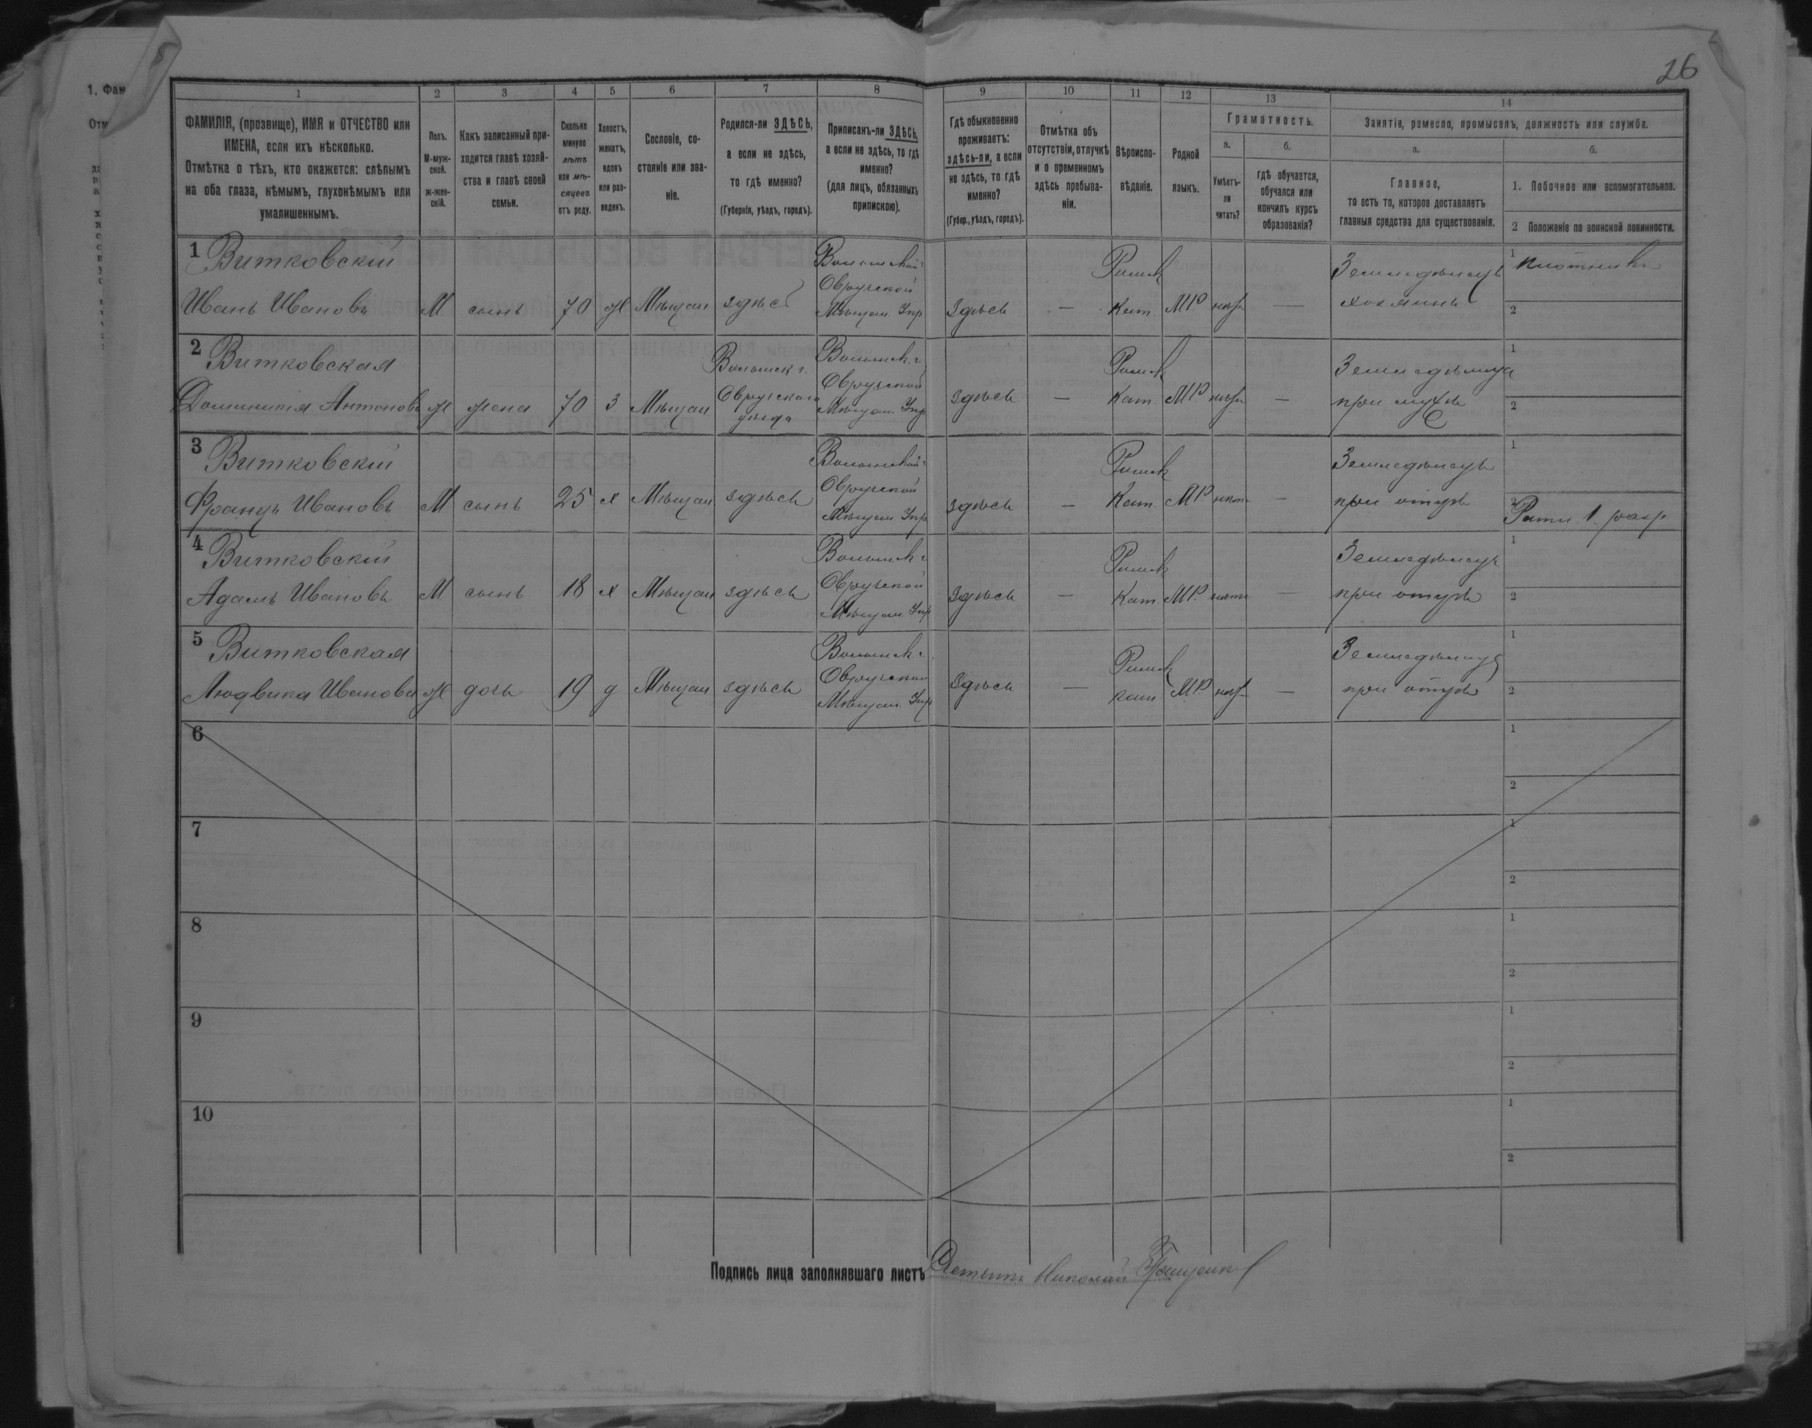 26
1. Фам
Отм
1 2 3 4 5 6 7 8 9 10 11 12 13 14
ФАМИЛІЯ, (прозвище), ИМЯ и ОТЧЕСТВО или
ИМЕНА, если ихъ нѣсколько.
Отмѣтка о тѣхъ, кто окажется: слѣпымъ
на оба глаза, нѣмымъ, глухонѣмымъ или
умалишеннымъ.
Полъ.
М-муж-
ской.
ж-жен-
скій.
Какъ записанный при-
ходится главѣ хозяй-
ства и главѣ своей
семьи.
Сколько
минуло
лѣтъ
или мѣ-
сяцевъ
отъ роду.
Холостъ,
женатъ,
вдовъ
или раз-
веденъ.
Сословіе, со-
стояніе или зва-
ніе.
Родился-ли ЗДѢСЬ,
а если не здѣсь,
то гдѣ именно?
(Губернія, уѣздъ, городъ).
Приписанъ-ли ЗДѢСЬ,
а если не здѣсь, то гдѣ
именно?
(для лицъ, обязанныхъ
припискою).
Гдѣ обыкновенно
проживаетъ:
здѣсь-ли, а если
не здѣсь, то гдѣ
именно?
(Губер., уѣздъ, городъ).
Отмѣтка объ
отсутствіи, отлучкѣ
и о временномъ
здѣсь пребыва-
ніи.
Вѣроиспо-
вѣданіе.
Родной
языкъ.
Грамотность.
а.
Умѣетъ-
ли
читать?
б.
гдѣ обучается,
обучался или
кончилъ курсъ
образованія?
Занятіе, ремесло, промыселъ, должность или служба.
а.
Главное,
то есть то, которое доставляетъ
главныя средства для существованія.
б.
1. Побочное или вспомогательное.
2 Положеніе по воинской повинности.
1 Витковскій
Иванъ Ивановъ М сынъ 70 ж Мѣщан здѣсь
Овручской
Мѣщан. Упр
здѣсь —
Римск
Кат. МР —
Земледѣлецъ
хозяинъ
1
2
2 Витковская
Антонова ж жена 70 з Мѣщан
Волынск г.
Овручскаго
уѣзда
Волынск г
Овручской
Мѣщан Упр
здѣсь —
Римск
Кат МР —
при мужѣ
1
2
3 Витковскій
Францъ Ивановъ М сынъ 25 х Мѣщан здѣсь
Овручской
Мѣщан Упр
здѣсь —
Римск
Кат. МР —
Земледѣлецъ
при отцѣ
1
2 Ратн 1. разр
4 Витковскій
Адамъ Ивановъ М сынъ 18 х Мѣщан здѣсь
Волынск г
Овручской
Мѣщан Упр
здѣсь —
Римск
Кат. МР. —
Земледѣлецъ
при отцѣ
1
2
5 Витковская
Людвика Иванова ж дочь 19 д Мѣщан здѣсь
Волынск г.
Овручской
Мѣщан. Упр
здѣсь —
Римск
кат МР —
при отцѣ
1
2
6 1
2
7 1
2
8 1
2
9 1
2
10 1
2
Подпись лица заполнявшаго листъ Николай